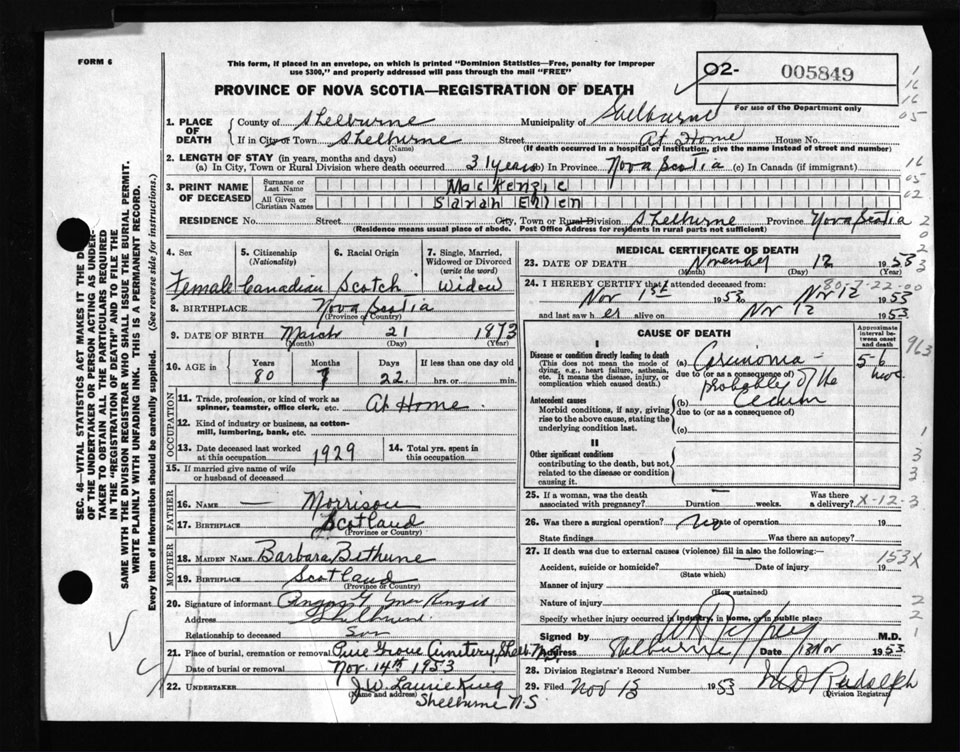 FORM 6
This form, if placed in an envelope, on which is printed "Dominion Statistics—Free, penalty for improper
use $300," and properly addressed will pass through the mail "FREE"
O2- 005849
For use of the Department only
PROVINCE OF NOVA SCOTIA—REGISTRATION OF DEATH
1. PLACE OF DEATH
County of Shelburne Municipality of Shelburne
If in City or Town Shelburne Street At Home House No.
(Name) (If death occurred in a hospital or institution, give the name instead of street and number)
2. LENGTH OF STAY (in years, months and days)
(a) In City, Town or Rural Division where death occurred 31 years (b) In Province Nova Scotia (c) In Canada (if immigrant)
3. PRINT NAME OF DECEASED
Surname or Last Name MacKenzie
All Given or Christian Names Sarah Ellen
RESIDENCE No. Street City, Town or Rural Division Shelburne Province Nova Scotia
(Residence means usual place of abode. Post Office Address for residents in rural parts not sufficient)
4. Sex
Female
5. Citizenship (Nationality)
Canadian
6. Racial Origin
Scotch
7. Single, Married, Widowed or Divorced (write the word)
Widow
8. BIRTHPLACE Nova Scotia
(Province or Country)
9. DATE OF BIRTH March 21 1873
(Month) (Day) (Year)
10. AGE in Years Months Days If less than one day old
80 7 22 hrs. or min.
OCCUPATION
11. Trade, profession, or kind of work as
spinner, teamster, office clerk, etc. At Home.
12. Kind of industry or business, as cotton-
mill, lumbering, bank, etc.
13. Date deceased last worked
at this occupation 1929
14. Total yrs. spent in
this occupation
15. If married give name of wife
or husband of deceased
FATHER
16. NAME — Morrison
17. BIRTHPLACE Scotland
(Province or Country)
MOTHER
18. MAIDEN NAME Barbara Bethune
19. BIRTHPLACE Scotland
(Province or Country)
20. Signature of informant Angus
Address Shelburne.
Relationship to deceased Son
21. Place of burial, cremation or removal Pine Grove Cemetery, Shelb. N.S.
Date of burial or removal Nov. 14th 1953
22. UNDERTAKER J.W. Laurie King
(Name and address)
Shelburne N-S
MEDICAL CERTIFICATE OF DEATH
23. DATE OF DEATH November 12 1953
(Month) (Day) (Year)
24. I HEREBY CERTIFY that I attended deceased from:
80-7-22-00
Nov 1st 1953 to Nov 12 1953
and last saw her alive on Nov 12 1953
CAUSE OF DEATH
Approximate interval between onset and death
I
Disease or condition directly leading to death
(This does not mean the mode of
dying, e.g., heart failure, asthenia,
etc. It means the disease, injury, or
complication which caused death.)
(a) Carcinoma -
due to (or as a consequence of)
probably of the
5-6 mos.
Antecedent causes
Morbid conditions, if any, giving
rise to the above cause, stating the
underlying condition last.
(b) Cecum
due to (or as a consequence of)
(c)
II
Other significant conditions
contributing to the death, but not
related to the disease or condition
causing it.
25. If a woman, was the death
associated with pregnancy? Duration weeks. Was there a delivery? X-12-3
26. Was there a surgical operation? no Date of operation 19
State findings Was there an autopsy?
27. If death was due to external causes (violence) fill in also the following:—
Accident, suicide or homicide? Date of injury 19
(State which)
153X
Manner of injury
(How sustained)
Nature of injury
Specify whether injury occurred in industry, in home, or in public place
Signed by M.D.
Address Shelburne Date 13 Nov 1953
28. Division Registrar's Record Number
29. Filed Nov 18 1953 Rudolph
(Division Registrar)
1
16
16
05
16
05
02
2
0
2
3
963
1
3
3
2
2
1
SEC. 46—VITAL STATISTICS ACT MAKES IT THE
OF THE UNDERTAKER OR PERSON ACTING AS UNDER-
TAKER TO OBTAIN ALL THE PARTICULARS REQUIRED
IN THE "REGISTRATION OF DEATH" AND TO FILE THE
SAME WITH THE DIVISION REGISTRAR WHO SHALL ISSUE THE BURIAL PERMIT.
WRITE PLAINLY WITH UNFADING INK. THIS IS A PERMANENT RECORD.
Every item of information should be carefully supplied. (See reverse side for instructions.)